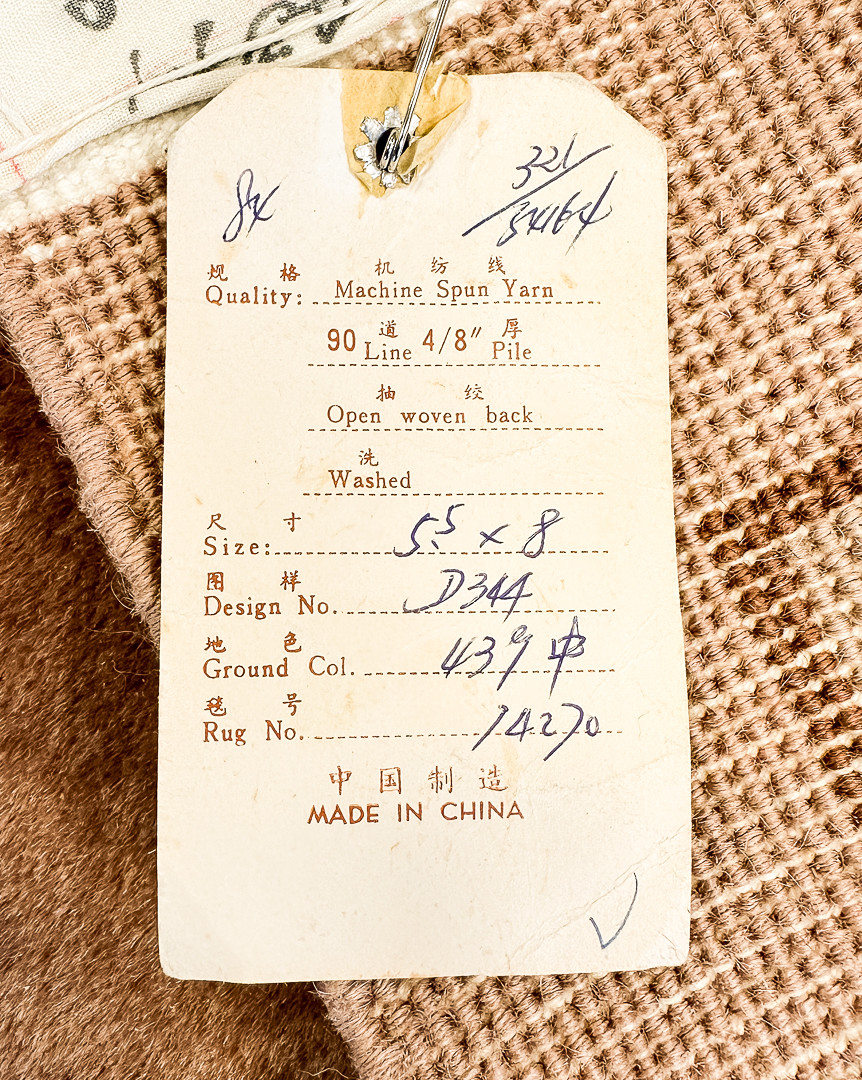 321
34164
规 格 机 纺 线
Quality: Machine Spun Yarn
道 厚
90 Line 4/8" Pile
抽 绞
Open woven back
洗
Washed
尺 寸
Size: 5.5 x 8
图 样
Design No. D344
地 色
Ground Col. 中
毯 号
Rug No. 14270
中 国 制 造
MADE IN CHINA